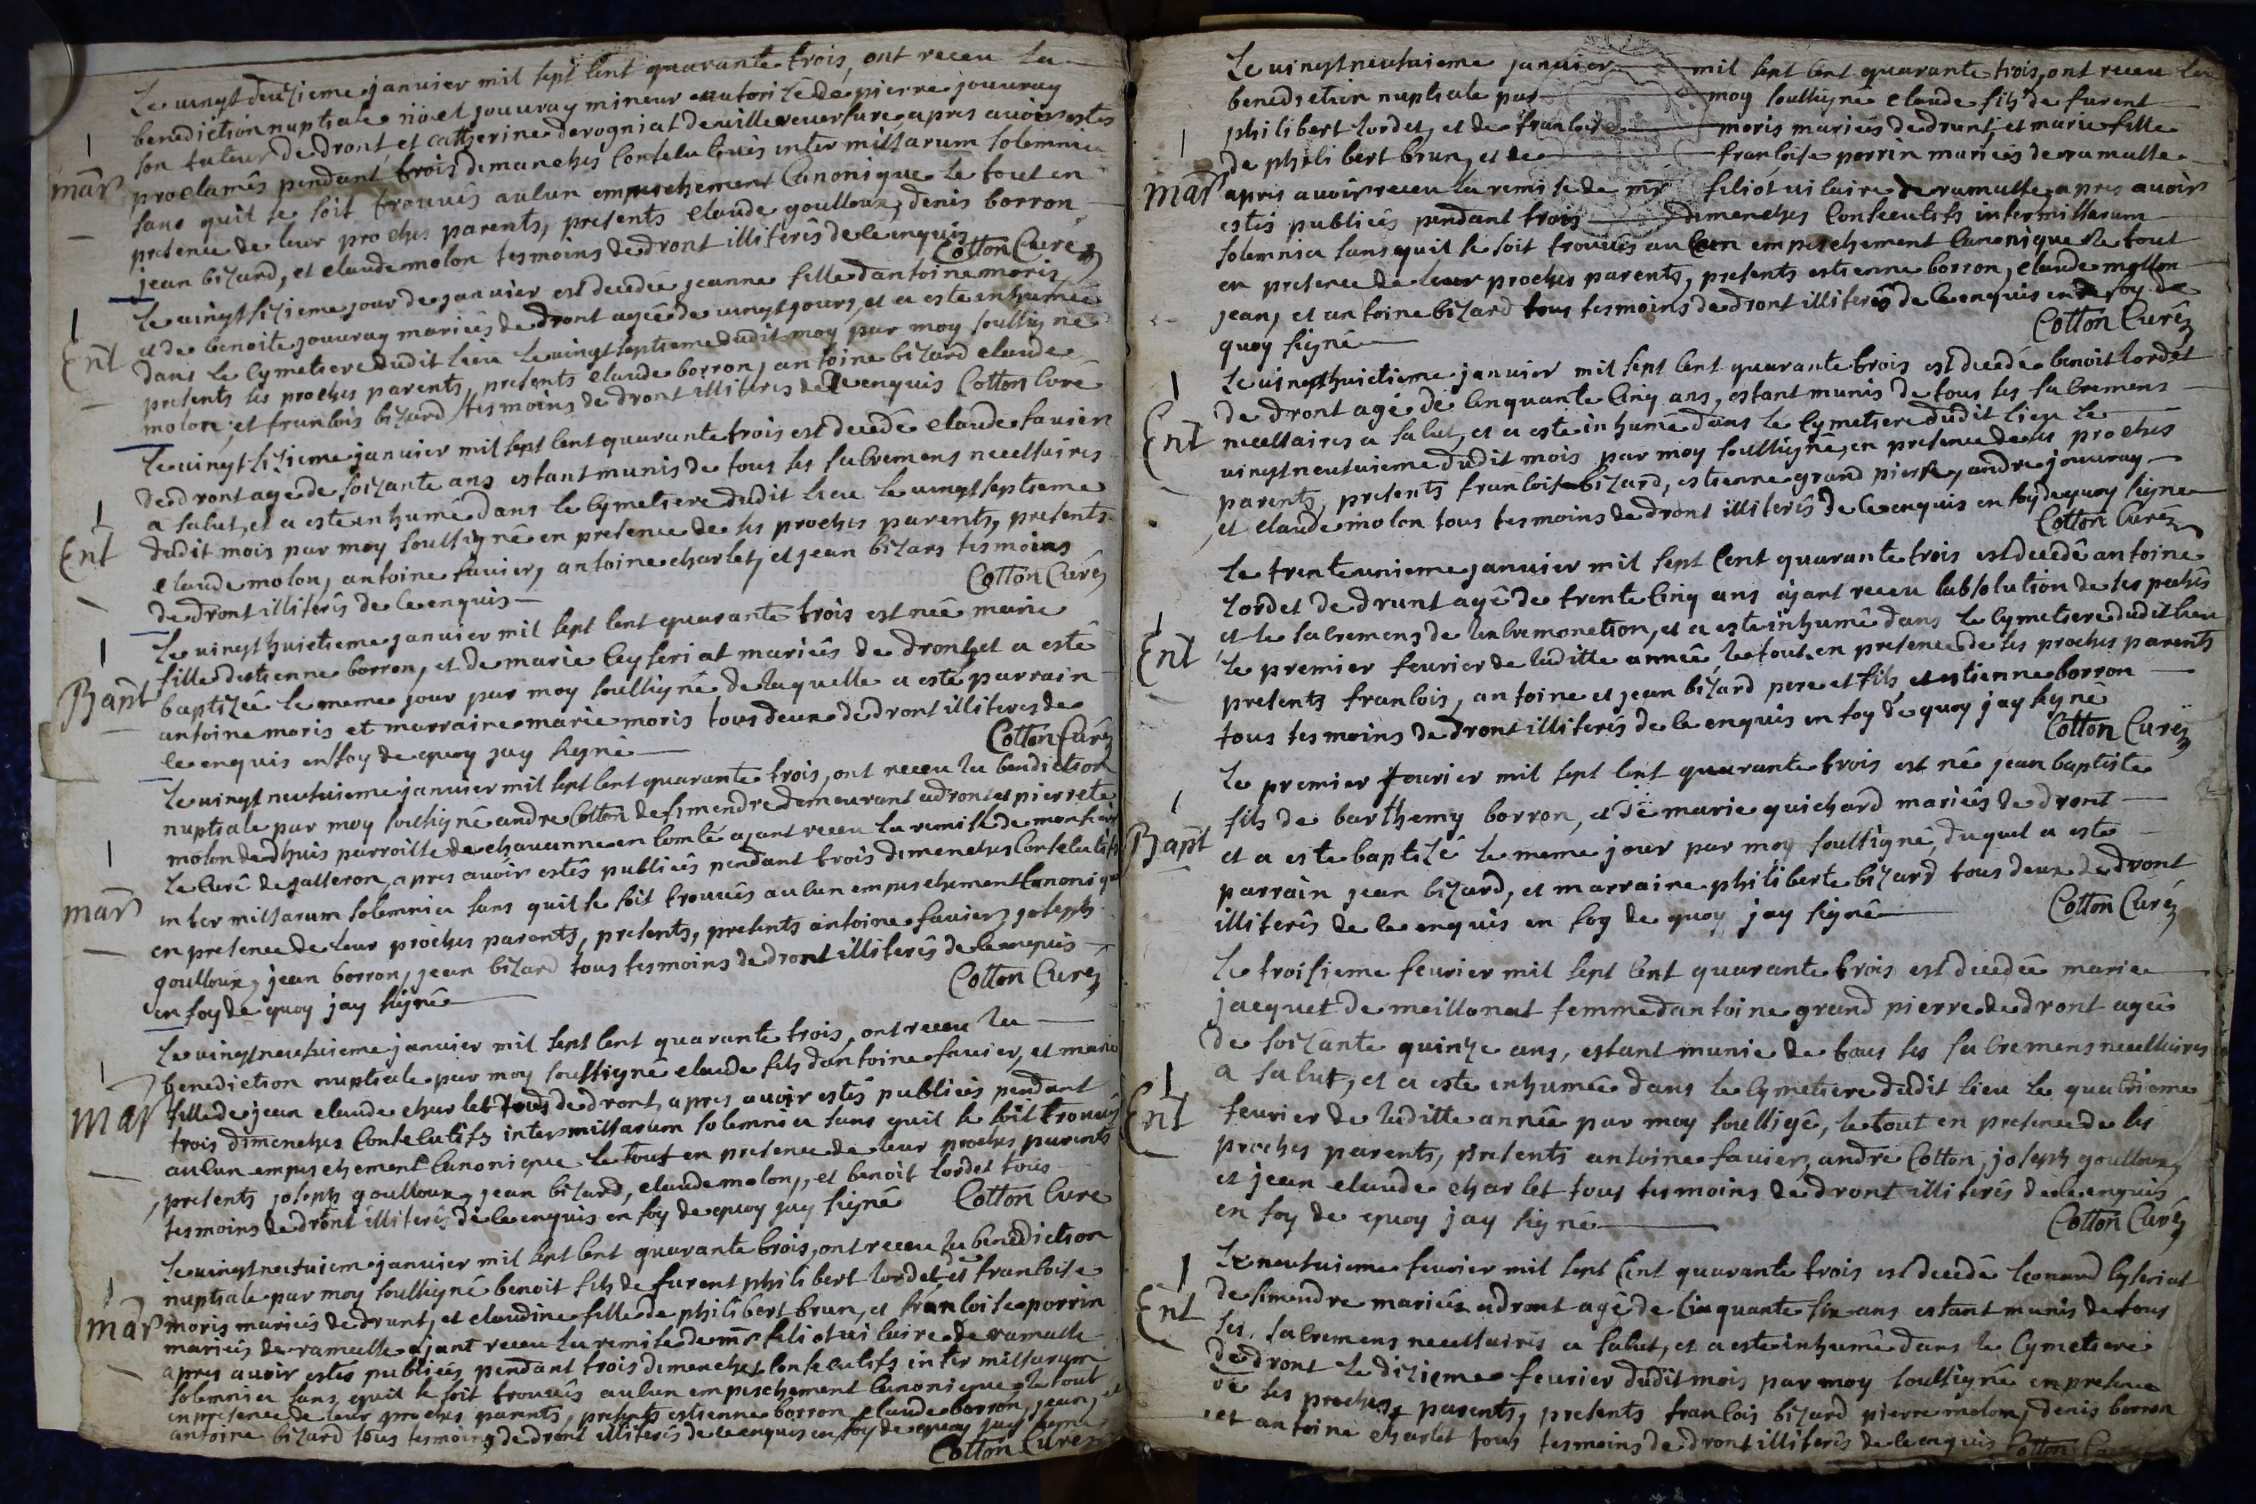 Le vingt deuzieme janvier mil sept cent quarante trois, ont receu la
benediction nuptiale noel jouvray mineur authorizé de pierre jouvray
son tuteur de dront, et catherine derogniat de villereversure apres avoir estés
proclamés pendant trois dimanches consecutivés inter missarum solemnia
sans quil se soit trouvés aucun empeschement canonique le tout en
presence de leur proches parents, presents claude goulloux, denis borron
jean bizard, et claude molon tesmoins de dront illiterés de ce enquis
Cotton Curé
mar
Le vingt sizieme jour de janvier est decedée jeanne fille dantoine moris
et de benoite jouvray mariés de dront agée de vingt jours, et a esté inhumée
dans le cymetiere dudit lieu le vingt septieme dudit moy par moy soussigné
presents ses proches parents, presents claude borron, antoine bizard claude
molon, et francois bizard tesmoins de dront illiterés de ce enquis Cotton Curé
Ent
Le vingt sizieme janvier mil sept cent quarante trois est decedé claude favier
de dront agé de soizante ans estant munis de tous ses sacremens necessaires
a salut, et a esté inhumé dans le cymetiere dudit lieu le vingt septieme
dudit mois par moy soussigné en presence de ses proches parents, presents
claude molon, antoine favier, antoine charlet, et jean bizard tesmoins
de dront illiterés de ce enquis
Cotton Curé
Ent
Le vingt huictieme janvier mil sept cent quarante trois est née marie
fille destienne borron, et de marie ceyseriat mariés de dront et a esté
baptizée le meme jour par moy soussigné de laquelle a esté parrain
antoine moris et marraine marie moris tous deux de dront illiteres de
ce enquis en foy de quoy jay signé
Cotton Curé
Bapt
Le vingt neuvieme janvier mil sept cent quarante trois, ont receu la benediction
nuptiale par moy soussigné andre Cotton de simendre demeurant a dront et pierrete
molon de dhuis parroisse de chavanne en comté ayant receu la remise de monsieur
le curé de galleron, apres avoir estés publiés pendant trois dimenches consecutifs
inter missarum solemnia sans quil se soit trouvés aucun empeschement canonique
en presence de leur proches parents, presents, presents antoine favier, joseph
goulloux, jean borron, jean bizard tous tesmoins de dront illiterés de ce enquis
en foy de quoy jay signé
Cotton Curé
mar
Le vingt neuvieme janvier mil sept cent quarante trois, ont receu la
benediction nuptiale par moy soussigné claude fils dantoine favier, et marie
fille de jean claude charlet tous de dront, apres avoir estés publiés pendant
trois dimenches consecutifs inter missarum solemnia sans quil se soit trouvés
aucun empeschement canonique le tout en presence de leur proches parents
presents joseph goulloux, jean bizard, claude molon, et benoit cordet tous
tesmoins de dront illiterés de ce enquis en foy de quoy jay signé Cotton Curé
mar
Le vingt neuvieme janvier mil sept cent quarante trois, ont receu la benediction
nuptiale par moy soussigné benoit fils de furent philibert cordet et de francoise
moris mariés de drunt, et claudine fille de philibert brun, et francoise perrin
mariés de ramasse ayant receu la remise de mr feliot vicaire de ramasse
apres avoir estés publiés pendant trois dimenches consecutifs inter missarum
solemnia sans quil se soit trouvés aucun empeschement canonique le tout
en presence de leur proches parents, presents estienne borron, claude borron, jean, et
antoine bizard tous tesmoins de dront illiterés de ce enquis en foy de quoy jay signé
Cotton Curé
mar
Le vingt neuvieme janvier mil sept cent quarante trois, ont receu la
benediction nuptiale par moy soussigné claude fils de furent
philibert cordet, et de francoise moris mariés de drunt, et marie fille
de philibert brun, et de francoise perrin mariés de ramasse
apres avoir receu la remise de mr feliot vicaire de ramasse, apres avoir
estés publiés pendant trois dimenches consecutifs inter missarum
solemnia sans quil se soit trouvés aucun empeschement canonique le tout
en presence de leur proches parents, presents estienne borron, claude mollon
jean, et antoine bizard tous tesmoins de dront illiterés de ce enquis en foy de
quoy signé
Cotton Curé
mar
Le vingt huictieme janvier mil sept cent quarante trois est decedé benoit cordet
de dront agé de cinquante cinq ans, estant munis de tous ses sacremens
necessaires a salut, et a esté inhumé dans le cymetiere dudit lieu le
vingt neuvieme dudit mois par moy soussigné, en presence de ses proches
parents, presents francoise bizard, estienne grand pierre, andre jouvray
et claude molon tous tesmoins de dront illiterés de ce enquis en foy de quoy signé
Cotton Curé
Ent
Le trente unieme janvier mil sept cent quarante trois est decedé antoine
cordet de drunt agé de trente cinq ans ajant receu labsolution de ses pechés
et le sacremens de lextremonction, et a esté inhumé dans le cymetiere dudit lieu
le premier fevrier de laditte année, le tout en presence de ses proches parents
presents francois, antoine et jean bizard pere et fils, et estienne borron
tous tesmoins de dront illiterés de ce enquis en foy de quoy jay signé
Cotton Curé
Ent
Le premier fevrier mil sept cent quarante trois est né jean baptiste
fils de barthemy borron, et de marie guichard mariés de dront
et a esté baptizé le meme jour par moy soussigné, duquel a esté
parrain jean bizard, et marraine philiberte bizard tous deux de dront
illiterés de ce enquis en foy de quoy jay signé
Cotton Curé
Bapt
Le troisieme fevrier mil sept cent quarante trois est decedée marie
jacquet de meillonat femme dantoine grand pierre de dront agée
de soizante quinze ans, estant munie de tous ses sacremens necessaires
a salut, et a esté inhumée dans le cymetiere dudit lieu le quatrieme
fevrier de laditte année par moy soussigé, le tout en presence de ses
proches parents, presents antoine favier, andre Cotton, joseph goulloux,
et jean claude charlet tous tesmoins de dront illiterés de ce enquis
en foy de quoy jay signé
Cotton Curé
Ent
Le neuvieme fevrier mil sept cent quarante trois est decedé leonard ceyseriat
de simendre mariéz a dront agé de cinquante six ans estant munis de tous
ses sacremens necessaires a salut, et a esté inhumé dans le cymetiere
de dront le dizieme fevrier dudit mois par moy soussigné en presence
de ses proches parents, presents francois bizard pierre molon, denis borron
et antoine charlet tous tesmoins de dront illiterés de ce enquis Cotton Curé
Ent